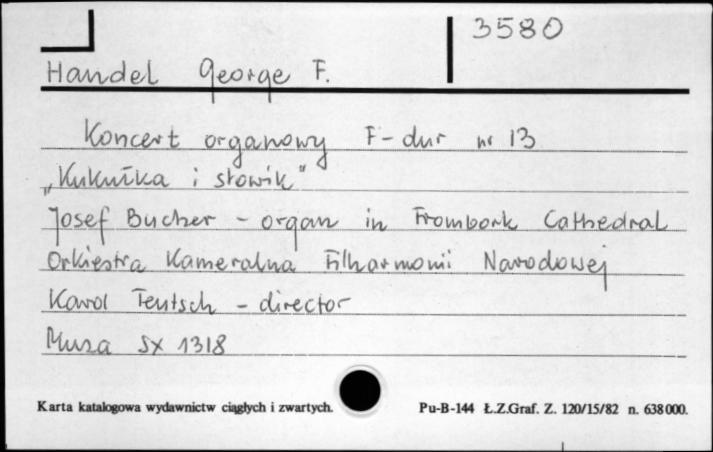 3580
Handel George F.
Koncert organowy F-dur nr 13
„Kukułka i słowik"
Josef Bucher - organ in Frombork Cathedral
Orkiestra Kameralna Filharmonii Narodowej
Karol Teutsch - director
Muza SX 1318
Karta katalogowa wydawnictw ciągłych i zwartych. Pu-B-144 Ł.Z.Graf. Z. 120/15/82 n. 638000.